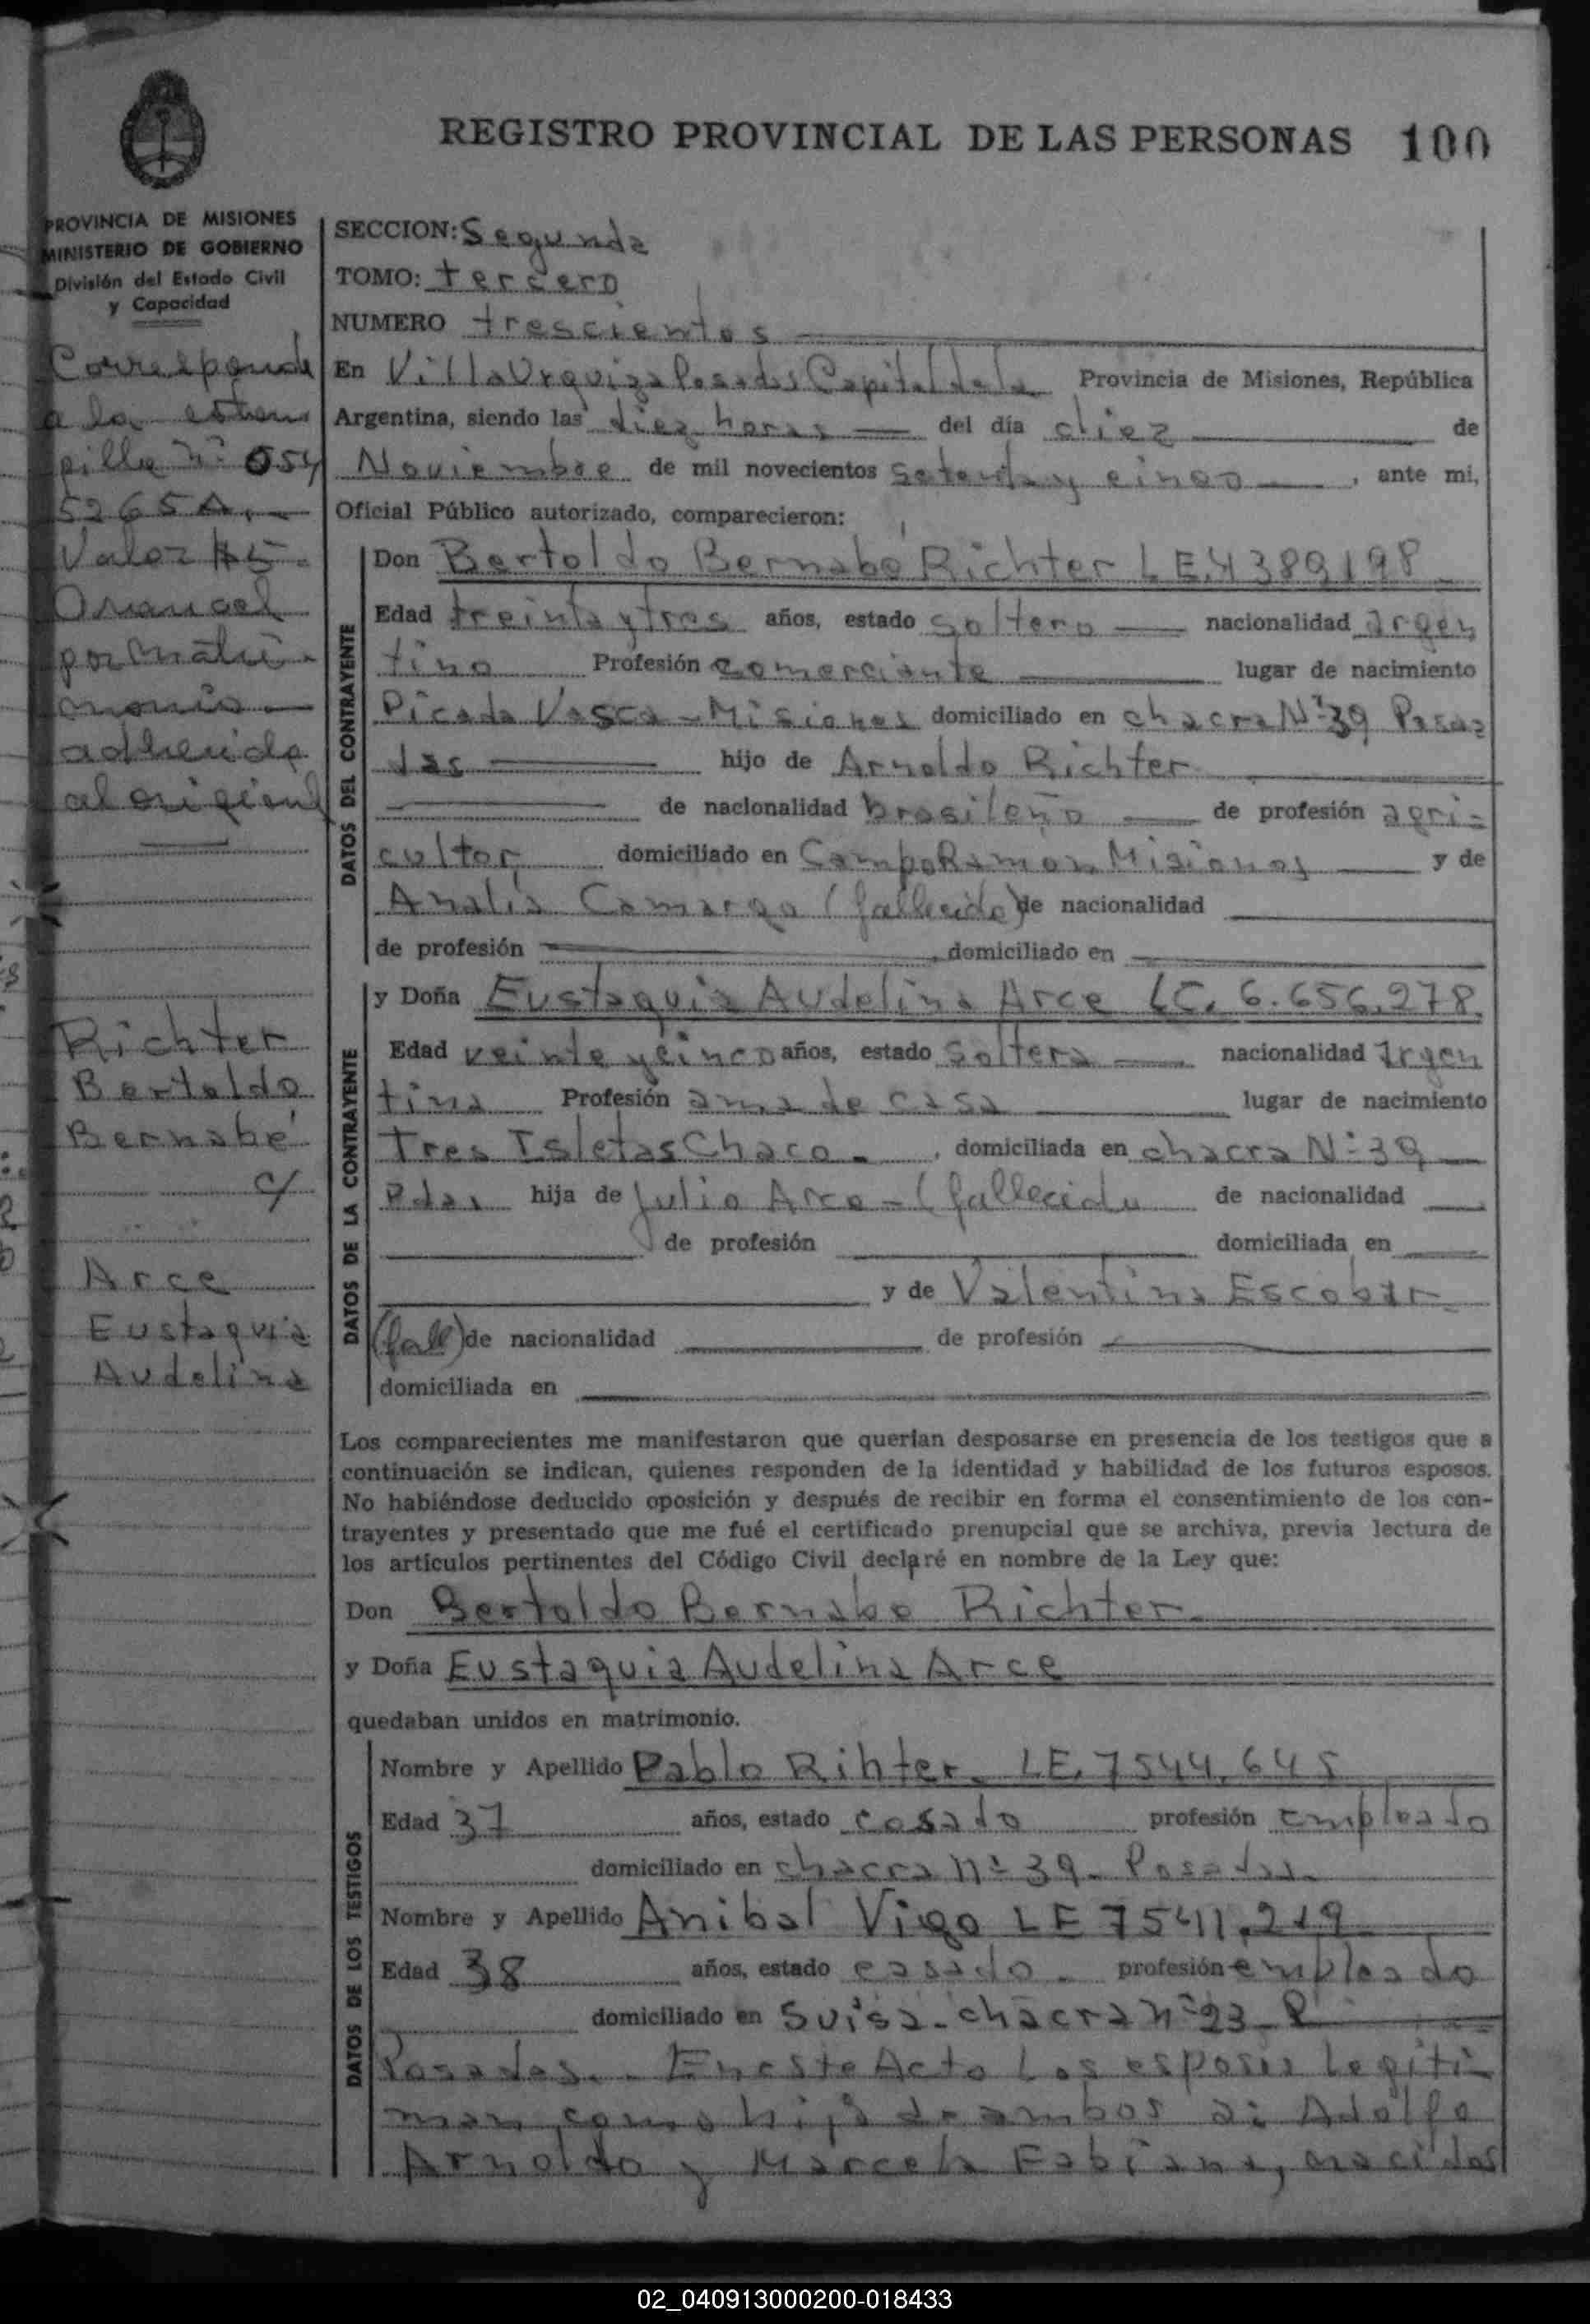 REGISTRO PROVINCIAL DE LAS PERSONAS 100
PROVINCIA DE MISIONES
MINISTERIO DE GOBIERNO
División del Estado Civil
y Capacidad
Corresponde
a la estam
pilla Nº 054
5265A.—
Valor $5-
Arancel
por matri-
monio—
adherida
al original
Richter
Bertoldo
Bernabé
c/
Arce
Eustaquia
Audelina
SECCION: Segunda
TOMO: tercero
NUMERO trescientos
En Villa Urquiza Posadas Capital de la Provincia de Misiones, República
Argentina, siendo las diez horas — del día diez — de
Noviembre de mil novecientos setenta y cinco —, ante mi,
Oficial Público autorizado, comparecieron:
DATOS DEL CONTRAYENTE
Don Bertoldo Bernabé Richter LE.4389198
Edad treinta y tres años, estado soltero — nacionalidad argen
tino Profesión comerciante — lugar de nacimiento
Picada Vasca - Misiones domiciliado en chacra Nº 39 Posa=
das — hijo de Arnoldo Richter
— de nacionalidad brasileño — de profesión agri=
cultor domiciliado en Campo Ramon Misiones — y de
Analia Camargo (fallecida) de nacionalidad —
de profesión — domiciliado en —
DATOS DE LA CONTRAYENTE
y Doña Eustaquia Audelina Arce LC. 6.656.278.
Edad veinte y cinco años, estado soltera — nacionalidad Argen
tina Profesión ama de casa — lugar de nacimiento
Tres Isletas Chaco. , domiciliada en chacra Nº 39 —
Pdas hija de Julio Arce - (fallecido de nacionalidad —
— de profesión — domiciliada en —
— y de Valentina Escobar
(fall) de nacionalidad — de profesión —
domiciliada en —
Los comparecientes me manifestaron que querían desposarse en presencia de los testigos que a
continuación se indican, quienes responden de la identidad y habilidad de los futuros esposos.
No habiéndose deducido oposición y después de recibir en forma el consentimiento de los con-
trayentes y presentado que me fué el certificado prenupcial que se archiva, previa lectura de
los artículos pertinentes del Código Civil declaré en nombre de la Ley que:
Don Bertoldo Bernabe Richter
y Doña Eustaquia Audelina Arce
quedaban unidos en matrimonio.
DATOS DE LOS TESTIGOS
Nombre y Apellido Pablo Rihter. LE. 7544.645
Edad 37 años, estado casado profesión empleado
domiciliado en chacra nº 39- Posadas.
Nombre y Apellido Anibal Vigo LE 7541.219
Edad 38 años, estado casado. profesión empleado
domiciliado en Suisa - chacra nº 23- P
Posadas.- En este Acto Los esposos Legiti-
man como hijo de ambos a: Adolfo
Arnoldo y Marcela Fabiana, nacidos
02_040913000200-018433